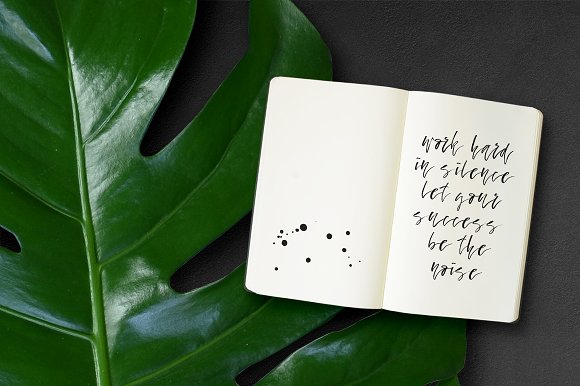 work hard
in silence
let your
success
be the
noise